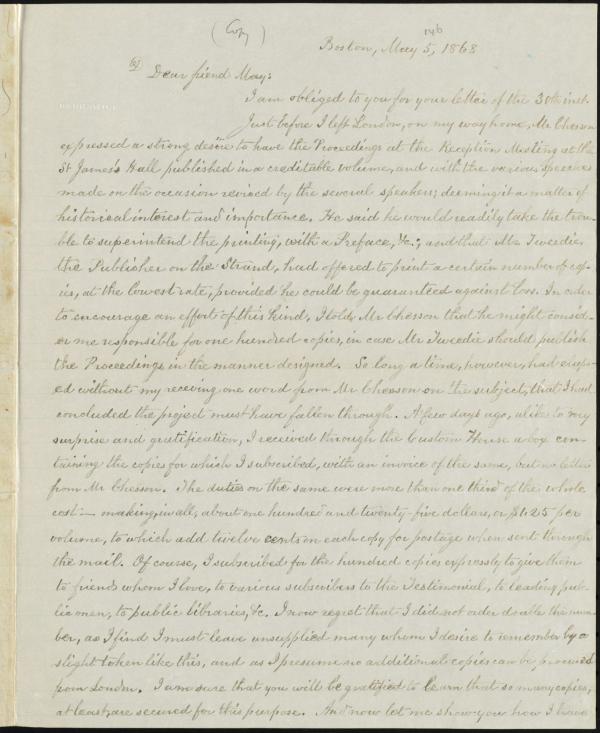 (Copy)
146
Boston, May 5, 1868
Dear friend May:
I am obliged to you for your letter of the 30th inst.
Just before I left London, on my way home, Mr Chesson
expressed a strong desire to have the Proceedings at the Reception Meeting at the
St James's Hall published in a creditable volume, and with the various speeches
made on the occasion revised by the several speakers; deeming it a matter of
historical interest and importance. He said he would readily take the trou-
ble to superintend the printing, with a Preface, &c.; and that Mr Tweedie,
the Publisher on the Strand, had offered to print a certain number of cop-
ies, at the lowest rate, provided he could be guaranteed against loss. In order
to encourage an effort of this kind, I told Mr Chesson that he might consid-
er me responsible for one hundred copies, in case Mr Tweedie should publish
the Proceedings in the manner designed. So long a time, however, had elaps-
ed without my receiving one word from Mr Chesson on the subject, that I had
concluded the project must have fallen through. A few days ago, alike to my
surprise and gratification, I received through the Custom House a box con-
taining the copies for which I subscribed, with an invoice of the same, but no letter
from Mr Chesson. The duties on the same were more than one third of the whole
cost — making, in all, about one hundred and twenty-five dollars, or $1.25 per
volume, to which add twelve cents on each copy for postage when sent through
the mail. Of course, I subscribed for the hundred copies expressly to give them
to friends whom I love, to various subscribers to the Testimonial, to leading pub-
lic men, to public libraries, &c. I now regret that I did not order double the num-
ber, as I find I must leave unsupplied many whom I desire to remember by a
slight token like this, and as I presume no additional copies can be procured
from London. I am sure that you will be gratified to learn that so many copies,
at least, are secured for this purpose. And now let me show you how I have